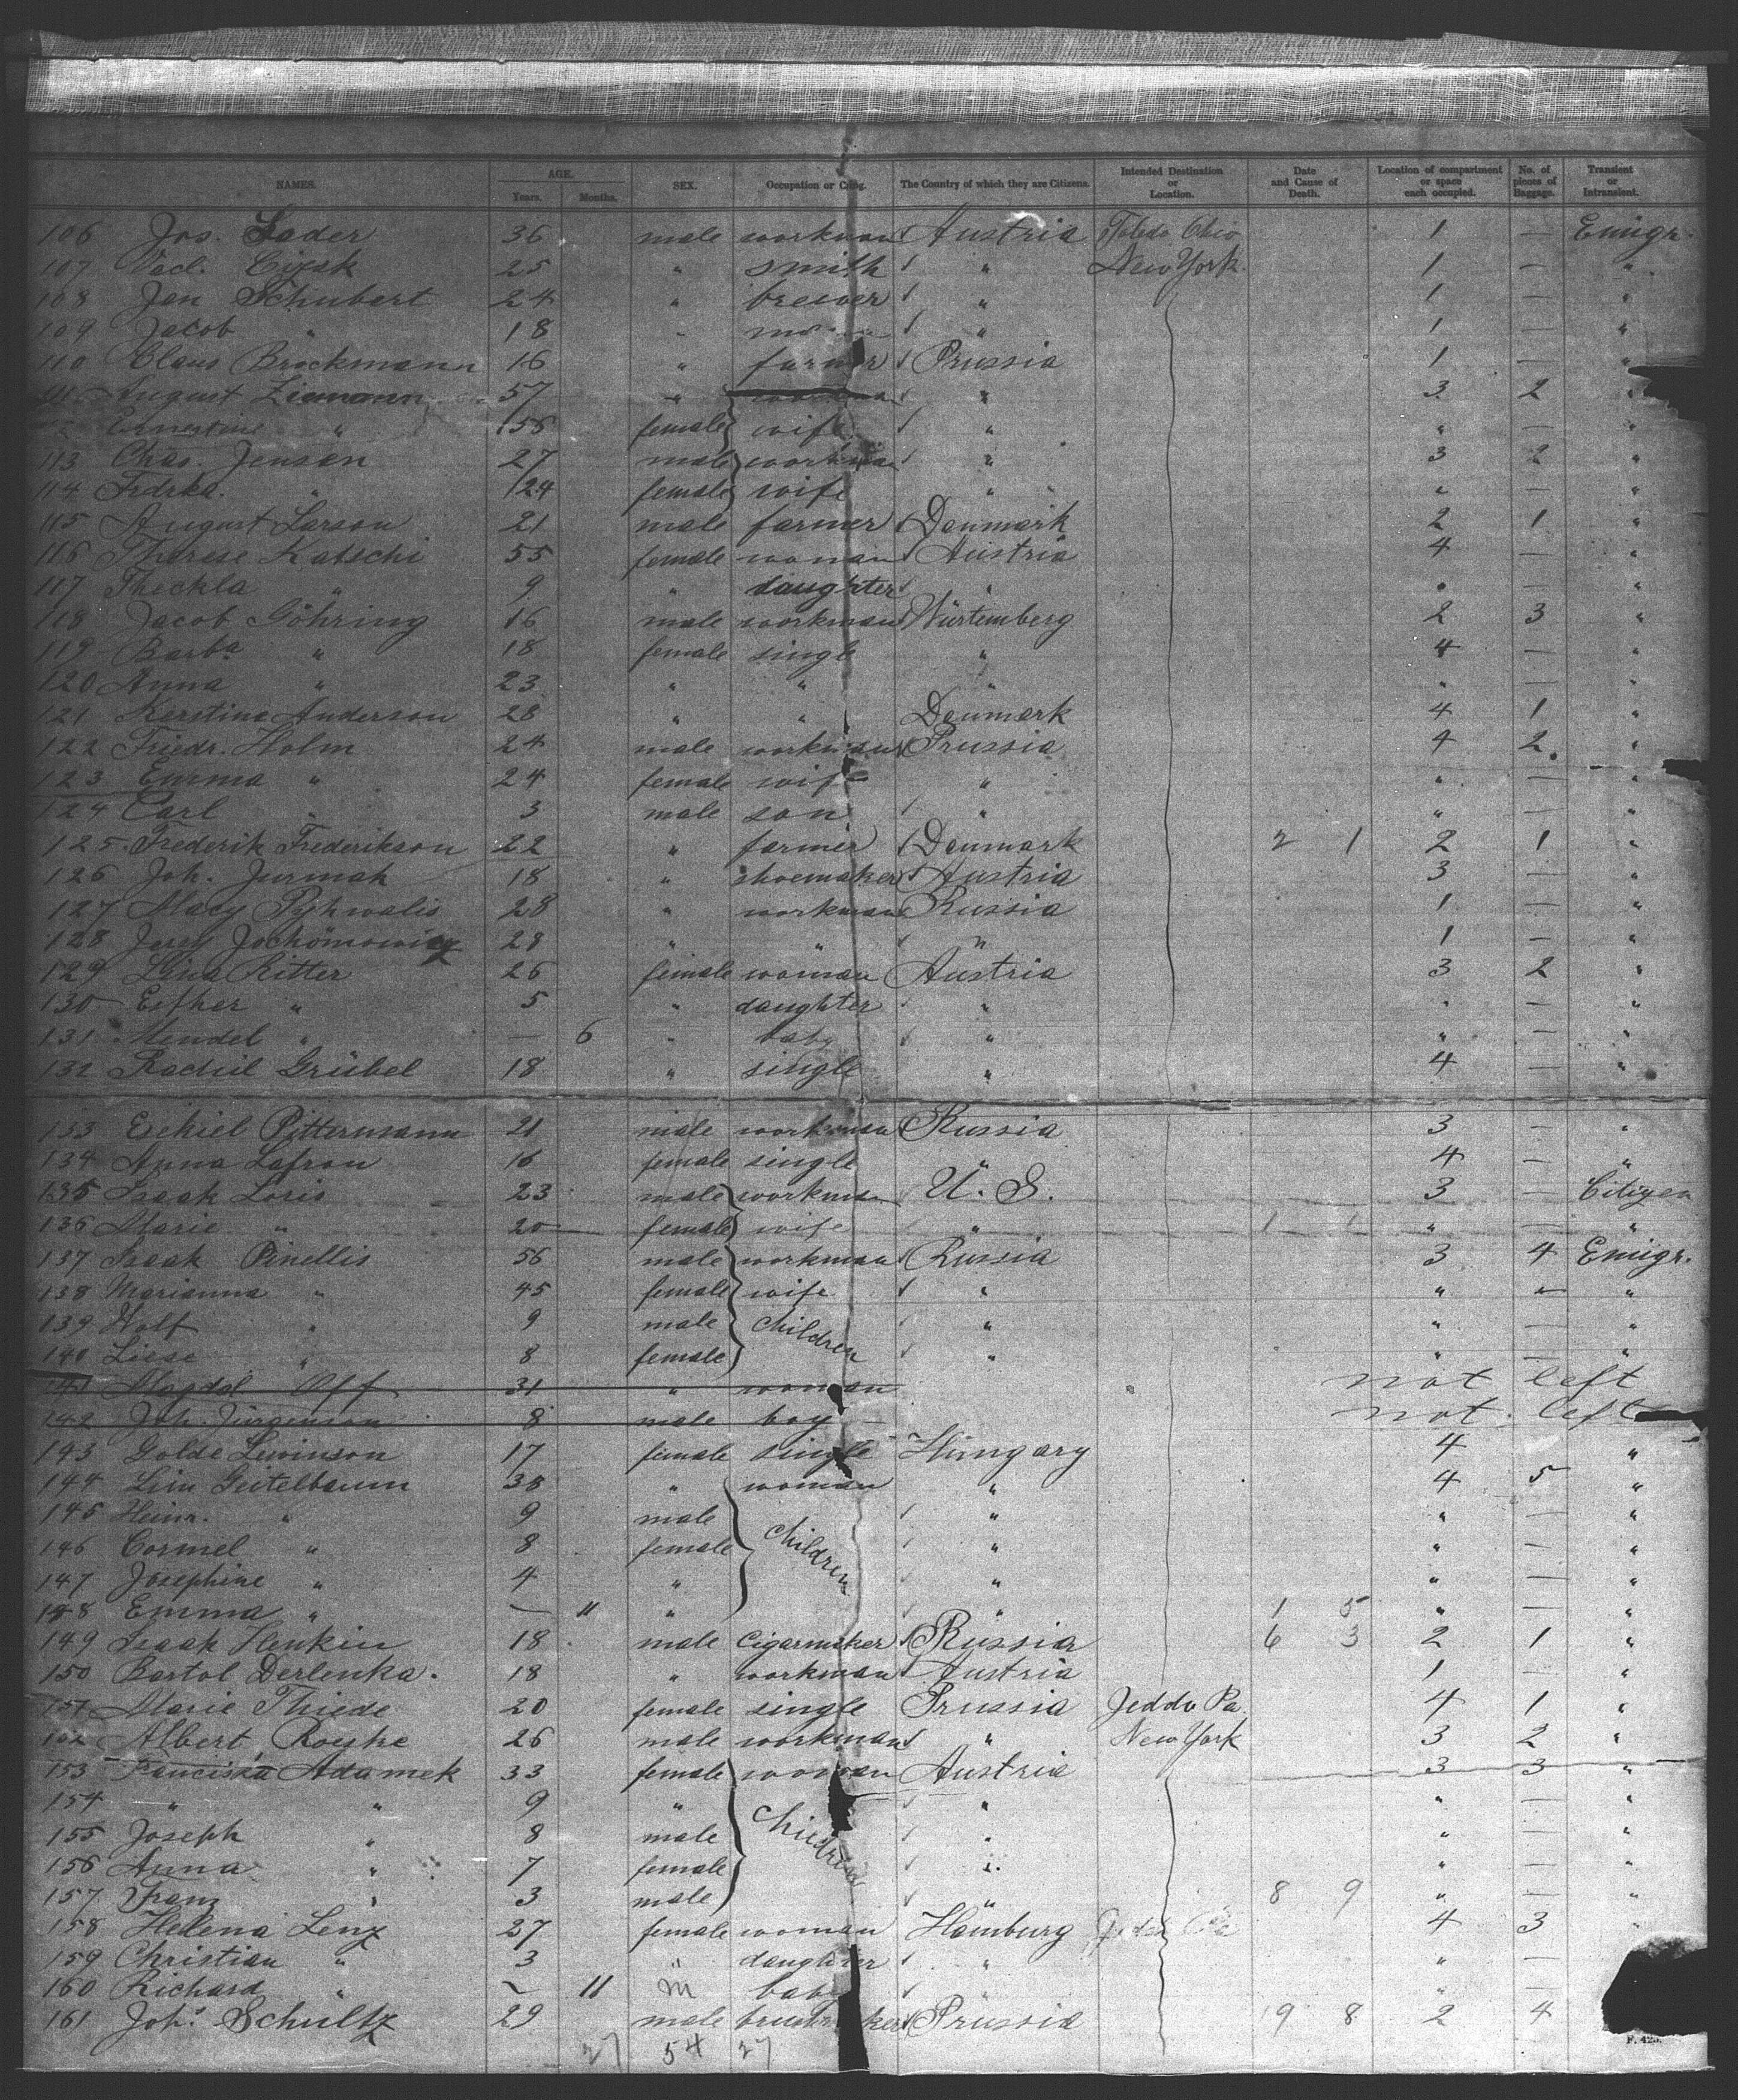 NAMES. AGE. Years. Months. SEX. Occupation or The Country of which they are Citizens. Intended Destination or Location. Date and Cause of Death. Location of compartment or space each occupied. No. of pieces of Baggage. Transient or Intransient.
106 Jos. Sader 36 male workman Austria Toledo Ohio 1 — Emigr.
107 Vacl. 25 " smith " New York 1 — "
108 Jan Schubert 24 " brewer " 1 — "
109 Jacob " 18 " " 1 — "
110 Claus Brockmann 16 " farmer Prussia 1 — "
111 August Ziemann 57 " " 3 2 "
Ernestine " 56 female wife " " — "
113 Chas. Jensen 27 male workman " 3 2 "
114 Frdrka. " 24 female wife " " — "
115 August Larson 21 male farmer Denmark 2 1 "
116 Therese Katschi 55 female woman Austria 4 — "
117 Theckla " 9 " daughter " " — "
118 Jacob Göhring 16 male workman Würtemberg 2 3 "
119 Barba " 18 female single " 4 — "
120 Anna " 23 " " " " — "
121 Kerstine Anderson 28 " " Denmark 4 1 "
122 Friedr. Holm 24 male workman Prussia 4 2 "
123 Emma " 24 female wife " " — "
124 Carl " 3 male son " " — "
125 Frederik Frederikson 22 " farmer Denmark 2 1 2 1 "
126 Joh. Jurmak 18 " shoemaker Austria 3 — "
127 Macy Pyhwalis 28 " workman Russia 1 — "
128 Jochömowicz 28 " " " 1 — "
129 Lina Ritter 26 female woman Austria 3 2 "
130 Esther " 5 " daughter " " — "
131 Mendel " — 6 " baby " " — "
132 Rachil Grübel 18 " single " 4 — "
133 Eichiel Pittermann 21 male workman Russia 3 — "
134 Anna Lafron 16 female single " 4 — "
135 Isaak Loris 23 male workman U. S. 3 — Citizen
136 Marie " 20 female wife " 1 1 " — "
137 Isaak Pinellis 56 male workman Russia 3 4 Emigr.
138 Marianna " 45 female wife " " — "
139 Wolf " 9 male Children " " — "
140 Liese " 8 female " " — "
141 Magdal Off 31 " woman not left
142 Joh. Jürgenson 8 male boy — not left
143 Golde Lewinson 17 female single Hungary 4 "
144 Lim Geitelbaum 38 " woman " 4 5 "
145 Heinr. " 9 male Children " " — "
146 Cormel " 8 female " " — "
147 Josephine " 4 " " " — "
148 Emma " — 11 " " 1 5 " — "
149 Isaak Henkin 18 male Cigarmaker Russia 6 3 2 1 "
150 Bartol Derlenka. 18 " workman Austria 1 — "
151 Marie Thiede 20 female single Prussia Jeddo Pa. 4 1 "
152 Albert Roeske 26 male workman " New York 3 2 "
153 Fanciska Adamek 33 female woman Austria 3 3 "
154 " " 9 " Children " " — "
155 Joseph " 8 male " " — "
156 Anna " 7 female " " — "
157 Franz " 3 male " 8 9 " — "
158 Helena Lenz 27 female woman Hamburg 4 3 "
159 Christian " 3 " daughter " " —
160 Richard " — 11 m baby " " —
161 Joh. Schultz 29 male Prussia 9 8 2 4
27 54 27